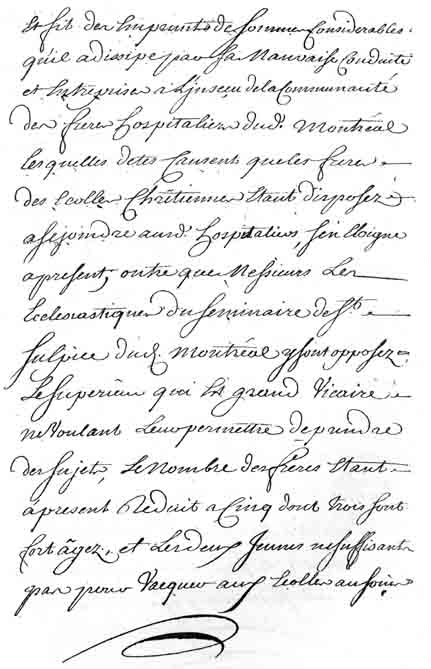 Et fit des Emprunts de sommes Considerables
qu'il a dissipé par sa Mauvaise Conduite
et Entreprise a L'jnsçeu de la Communauté
des freres hospitaliers dud. Montréal
lesquelles detes Causent que les freres
des Ecolles Chrétiennes Etant disposez
a se joindre aux d. hospitaliers, s'en Eloigne
apresent, outre que Messieurs Les
Ecclesiastiques du Seminaire de St.
Sulpice dud. Montréal y sont opposez
Le Superieur qui Est grand Vicaire
ne Voulant Leur permettre de prendre
des sujets, Le Nombre des freres Etant
apresent Reduit a Cinq dont trois sont
fort âgez, et Les deux Jeunes ne suffisants
pas pour Vacquer aux Ecolles au soin